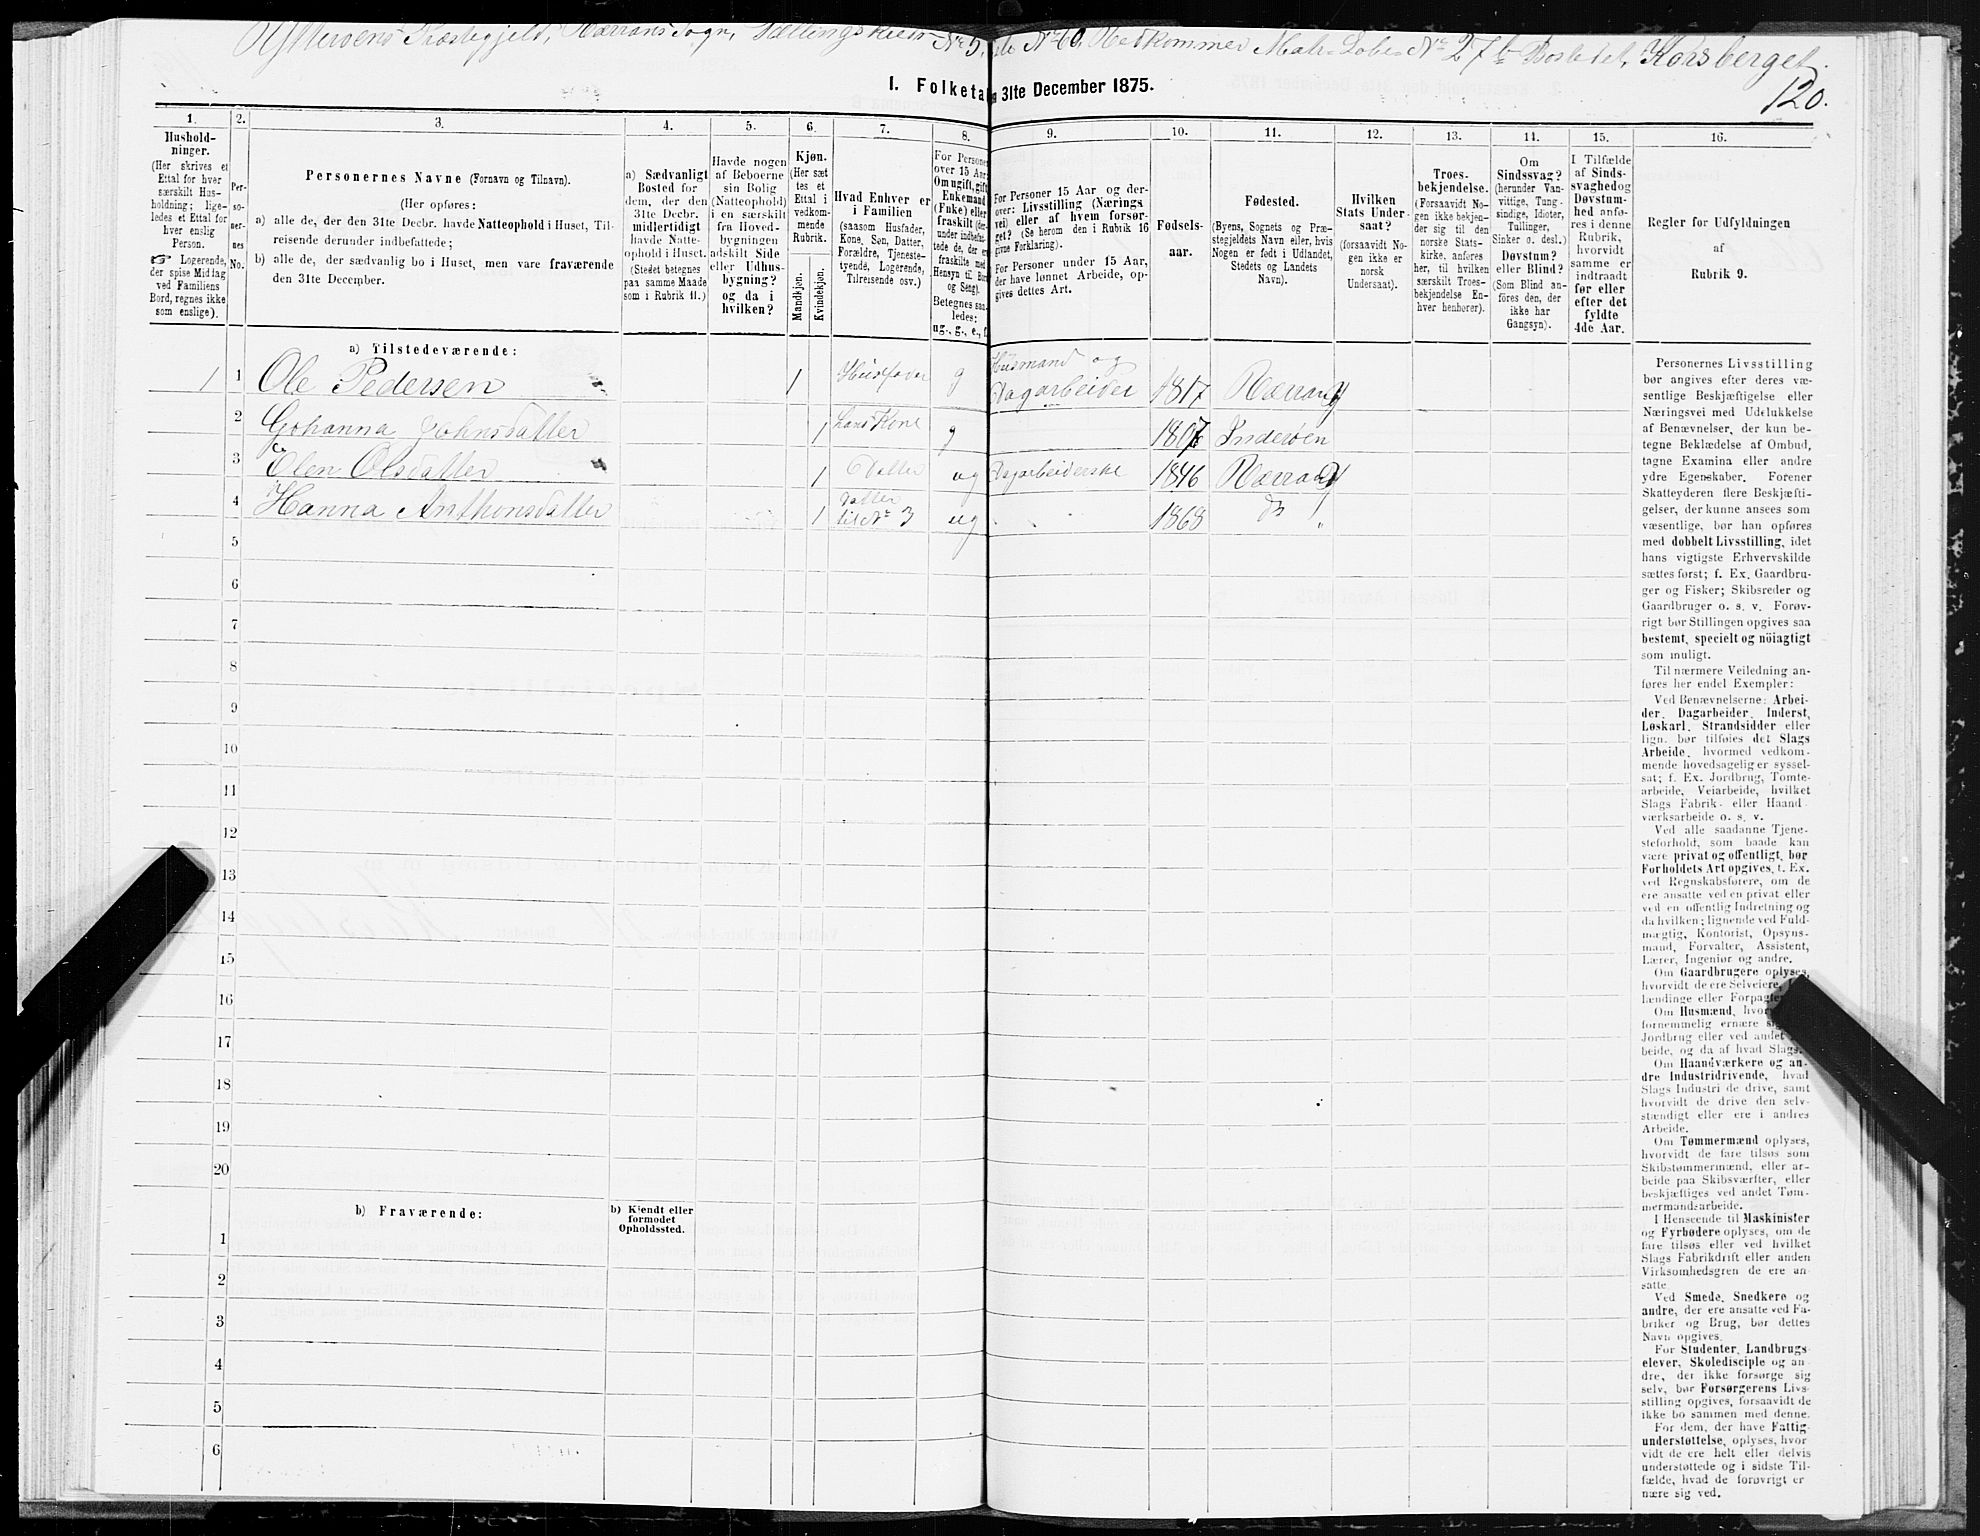 Ytterøens Præstegjeld, Rørrans Sogn, Tællingskreds No 5, Liste No 60, Vedkommer Matr. Løbe No 27b Bostedet, Korsberget.
120.
I. Folketal 31te December 1875.
1. 2. 3. 4. 5. 6. 7. 8. 9. 10. 11. 12. 13. 14. 15. 16.
Hushold-
ninger.
(Her skrives et
Ettal for hver
særskilt Hus-
holdning; lige-
ledes et Ettal for
hver enslig
Person.
☞ Logerende,
der spise Middag
ved Familiens
Bord, regnes ikke
som enslige).
Per-
so-
ner-
nes
No.
Personernes Navne (Fornavn og Tilnavn).
(Her opføres:
a) alle de, der den 31te Decbr. havde Natteophold i Huset, Til-
reisende derunder indbefattede;
b) alle de, der sædvanlig bo i Huset, men vare fraværende
den 31te December.
a) Sædvanligt
Bosted for
dem, der den
31te Decbr.
midlertidigt
havde Natte-
ophold i Huset.
(Stedet betegnes
paa samme Maade
som i Rubrik 11.)
Havde nogen
af Beboerne
sin Bolig
(Natteophold)
i en særskilt
fra Hoved-
bygningen
adskilt Side
eller Udhus-
bygning?
og da i
hvilken?
Kjøn.
(Her sæt
tes et
Ettal i
vedkom-
mende
Rubrik.
Mandkjøn.
Kvindekjøn.
Hvad Enhver er
i Familien
(saasom Husfader,
Kone, Søn, Datter,
Forældre, Tjeneste-
tyende, Logerende,
Tilreisende osv.)
For Personer
over 15 Aar:
Om ugift, gift,
Enkemand
(Enke) eller
fraskilt (der-
under indbefat-
tede de, der er
fraskilte med
Hensyn til Bord
og Seng).
Betegnes saa-
ledes:
ug., g., e., f.
For Personer 15 Aar og der-
over: Livsstilling (Nærings
vei) eller af hvem forsør-
get? (Se herom den i Rubrik 16
givne Forklaring).
For Personer under 15 Aar,
der have lønnet Arbeide, op-
gives dettes Art.
Fødsels-
aar.
Fødested.
(Byens, Sognets og Præ-
stegjeldets Navn eller, hvis
Nogen er født i Udlandet,
Stedets og Landets
Navn).
Hvilken
Stats Under-
saat?
(forsaavidt No-
gen ikke er
norsk
Undersaat).
Troes-
bekjendelse.
(Forsaavidt No-
gen ikke bekjen-
der sig til den
norske Stats-
kirke, anføres
her, til hvilken
særskilt Troes-
bekjendelse En-
hver henhører).
Om
Sindssvag?
(herunder Van-
vittige, Tung-
sindige, Idioter,
Tullinger,
Sinker o. desl.)
Døvstum?
eller Blind?
(Som Blind an-
føres den, der
ikke har
Gangsyn).
I Tilfælde
af Sinds-
svaghed og
Døvstum-
hed anfø-
res i denne
Rubrik,
hvorvidt
samme er
indtraadt
før eller
efter det
fyldte
4de Aar.
Regler for Udfyldningen
af
Rubrik 9.
a) Tilstedeværende:
1 1 Ole Pedersen 1 Husfader g Husmand og Dagarbeider 1817 Rørrang
2 Johanna Johnsdatter 1 hans Kone g 1807 Inderøen
3 Elen Olsdatter 1 Datter ug Dagarbeiderske 1846 Rørrang
4 Hanna Anthonsdatter 1 Datter til No 3 ug 1868 do "
5
6
7
8
9
10
11
12
13
14
15
16
17
18
19
20
b) Fraværende:
b) Kjendt eller
formodet
Opholdssted.
1
2
3
4
5
6
Personernes Livsstilling
bør angives efter deres væ-
sentlige Beskjæftigelse eller
Næringsvei med Udelukkelse
af Benævnelser, der kun be-
tegne Beklædelse af Ombud,
tagne Examina eller andre
ydre Egenskaber. Forener
Skatteyderen flere Beskjæfti-
gelser, der kunne ansees som
væsentlige, bør han opføres
med dobbelt Livsstilling, idet
hans vigtigste Erhvervskilde
sættes først; f. Ex. Gaardbru-
ger og Fisker; Skibsreder og
Gaardbruger o. s. v. Forøv-
rigt bør Stillingen opgives saa
bestemt, specielt og nöiagtigt
som muligt.
Til nærmere Veiledning an-
føres her endel Exempler:
Ved Benævnelserne: Arbei-
der, Dagarbeider, Inderst,
Løskarl, Strandsidder eller
lign. bør tilføies det Slags
Arbeide, hvormed vedkom-
mende hovedsagelig er syssel-
sat; f. Ex. Jordbrug, Tomte-
arbeide, Veiarbeide, hvilket
Slags Fabrik- eller Haand-
værksarbeide o. s. v.
Ved alle saadanne Tjene-
steforhold, som baade kan
være privat og offentligt, bør
Forholdets Art opgives, t. Ex.
ved Regnskabsførere, om de
ere ansatte ved en privat eller
ved en offentlig Indretning og
da hvilken; lignende ved Fuld-
mægtig, Kontorist, Opsyns-
mand, Forvalter, Assistent,
Lærer, Ingeniør og andre.
Om Gaardbrugere oplyses,
hvorvidt de ere Selveiere,
lændinge eller
Om Husmænd,
fornemmelig ernære
Jordbrug eller ved andet
beide, og da af hvad Slags.
Om Haandværkere og an-
dre Industridrivende, hvad
Slags Industri de drive, samt
hvorvidt de drive den selv-
stændigt eller ere i andres
Arbeide.
Om Tømmermænd oplyses,
hvorvidt de fare tilsøs som
Skibstømmermænd, eller ar-
beide paa Skibsværfter, eller
beskjæftiges ved andet Tøm-
mermandsarbeide.
I Henseende til Maskinister
og Fyrbødere oplyses, om de
fare tilsøs eller ved hvilket
Slags Fabrikdrift eller anden
Virksomhedsgren de ere an-
satte
Ved Smede, Snedkere og
andre, der ere ansatte ved Fa-
briker og Brug, bør dettes
Navn opgives.
For Studenter, Landbrugs-
elever, Skoledisciple og an-
dre, der ikke forsørge sig
selv, bør Forsørgerens Livs-
stilling opgives, forsaavidt de
ikke bo sammen med denne.
For dem, der have Fattig-
understøttelse, oplyses, hvor-
vidt de ere helt eller delvis
understøttede og i sidste Til-
fælde, hvad de forøvrigt er
nære sig ved.